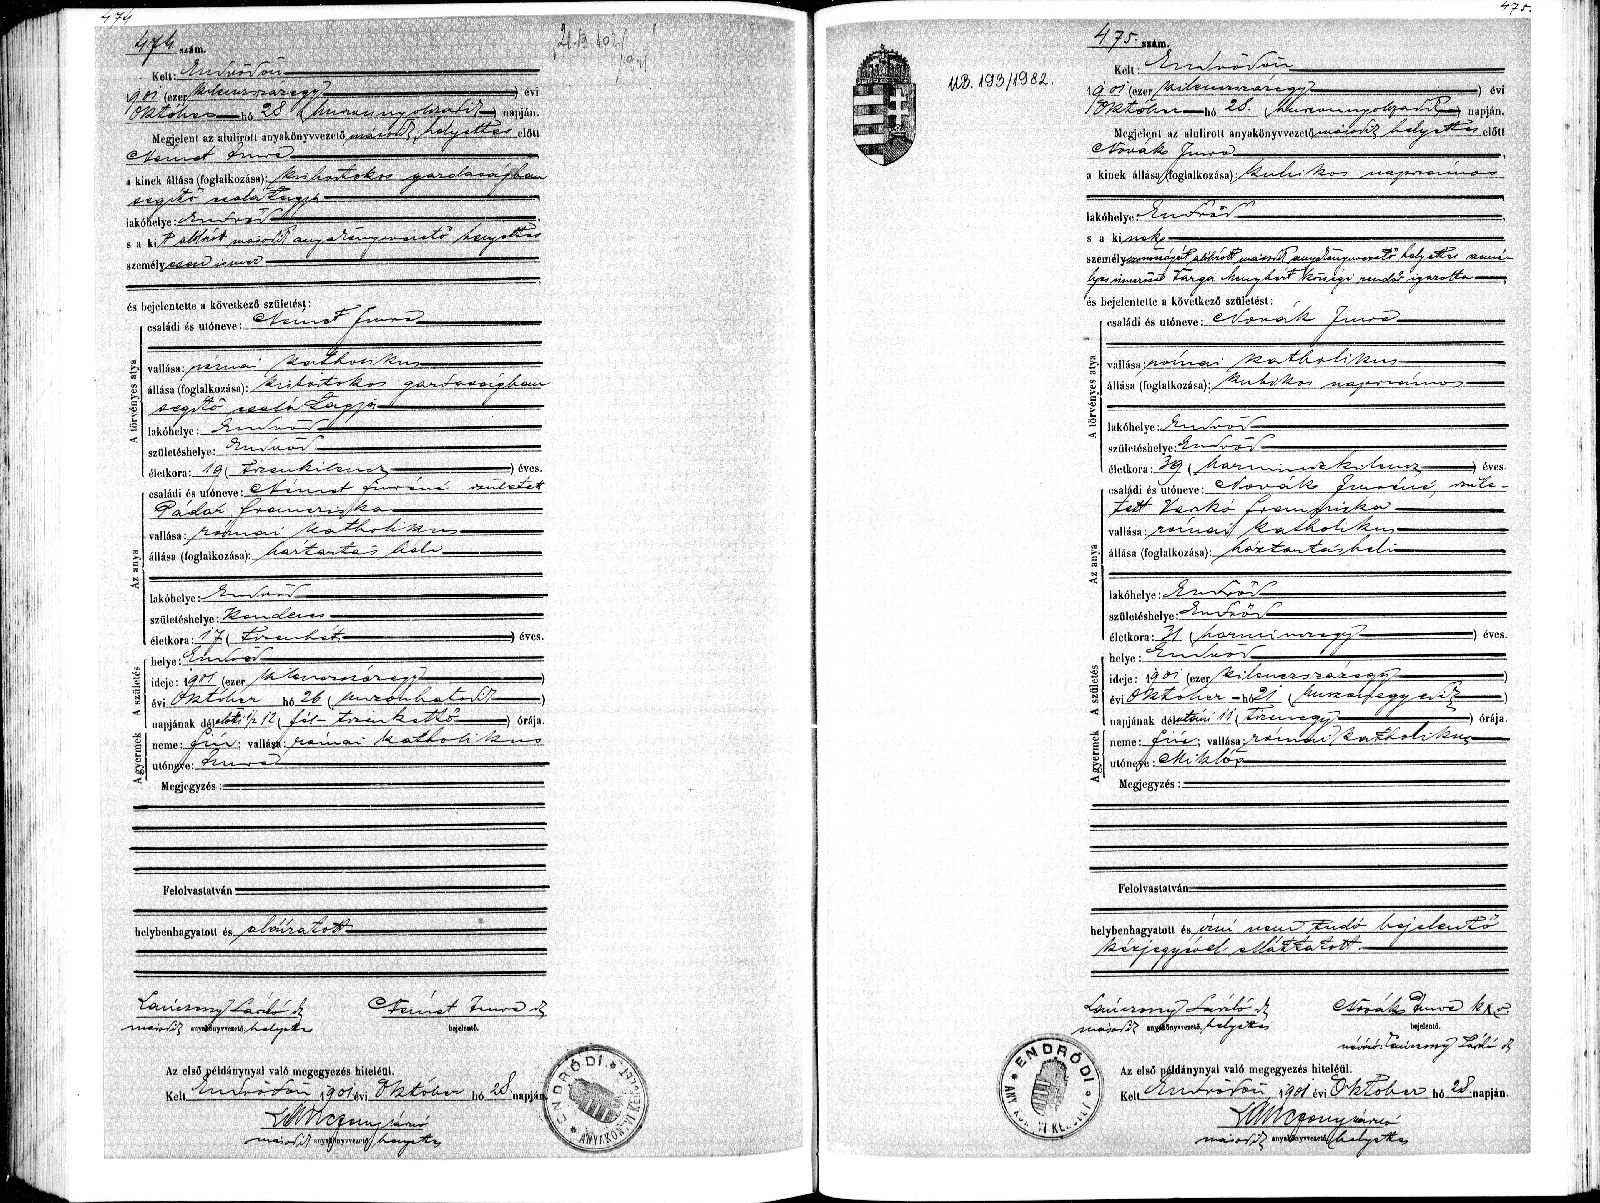 474
474 szám.
Kelt: Endrődön
1901 (ezer kilencszázegy) évi
Október hó 28 (huszonnyolczadik) napján.
Megjelent az alulirott anyakönyvvezető másodh. helyettes előtt
Német Imre
a kinek állása (foglalkozása): kisbirtokos gazdaságban
segítő családtagja
lakóhelye: Endrőd
s a kit alulirt másodh. anyakönyvvezető helyettes
személyesen ismer
és bejelentette a következő születést:
A törvényes atya
családi és utóneve: Német Imre
vallása: római katholikus
állása (foglalkozása): kisbirtokos gazdaságban
segítő család tagja
lakóhelye: Endrőd
születéshelye: Endrőd
életkora: 19 (tizenkilencz) éves.
Az anya
családi és utóneve: Német Imréné született
Padar Franciska
vallása: római katholikus
állása (foglalkozása): háztartásbeli
lakóhelye: Endrőd
születéshelye: Kenderes
életkora: 17 (tizenhét) éves.
A születés
helye: Endrőd
ideje: 1901 (ezer kilencszázegy)
évi Október hó 26 (huszonhatodik)
napjának délelőtti 1/2 12 (fél-tizenkettő) órája.
A gyermek
neme: fiú; vallása: római katholikus
utóneve: Imre
Megjegyzés:
Felolvastatván
helybenhagyatott és aláíratott
Lánczony László
Német Imre
anyakönyvvezető helyettes
bejelentő.
Az első példánynyal való megegyezés hiteléül.
Kelt Endrődön, 1901 évi Október hó 28 napján.
Lánczony László
anyakönyvvezető helyettes
ENDRŐDI
475.
MB. 193/1982.
475. szám.
Kelt: Endrődön
1901 (ezer kilencszázegy) évi
Október hó 28 (huszonnyolczadik) napján.
Megjelent az alulirott anyakönyvvezető másodh. helyettes előtt
Novák Imre
a kinek állása (foglalkozása): kubikos napszámos
lakóhelye: Endrőd
s a kinek
személyazonosságát alulirott másodh. anyakönyvvezető helyettes szemé-
lyes ismerőse Varga Menyhért községi rendőr igazolta
és bejelentette a következő születést:
A törvényes atya
családi és utóneve: Novák Imre
vallása: római katholikus
állása (foglalkozása): kubikos napszámos
lakóhelye: Endrőd
születéshelye: Endrőd
életkora: 39 (harminczkilencz) éves.
Az anya
családi és utóneve: Novák Imréné, szüle-
tett Varkó Franciska
vallása: római katholikus
állása (foglalkozása): háztartásbeli
lakóhelye: Endrőd
születéshelye: Endrőd
életkora: 31 (harminczegy) éves.
A születés
helye: Endrőd
ideje: 1901 (ezer kilencszázegy)
évi Október hó 21 (huszonegyedik)
napjának délutáni 11 (tizenegy) órája.
A gyermek
neme: fiú; vallása: római katholikus
utóneve: Miklós
Megjegyzés:
Felolvastatván
helybenhagyatott és írni nem tudó bejelentő
kézjegyével elláttatott.
Lánczony László
Novák Imre kx v
anyakönyvvezető helyettes
bejelentő.
névíró: Lánczony László
Az első példánynyal való megegyezés hiteléül.
Kelt Endrődön, 1901 évi Október hó 28 napján.
Lánczony László
anyakönyvvezető helyettes
ENDRŐDI